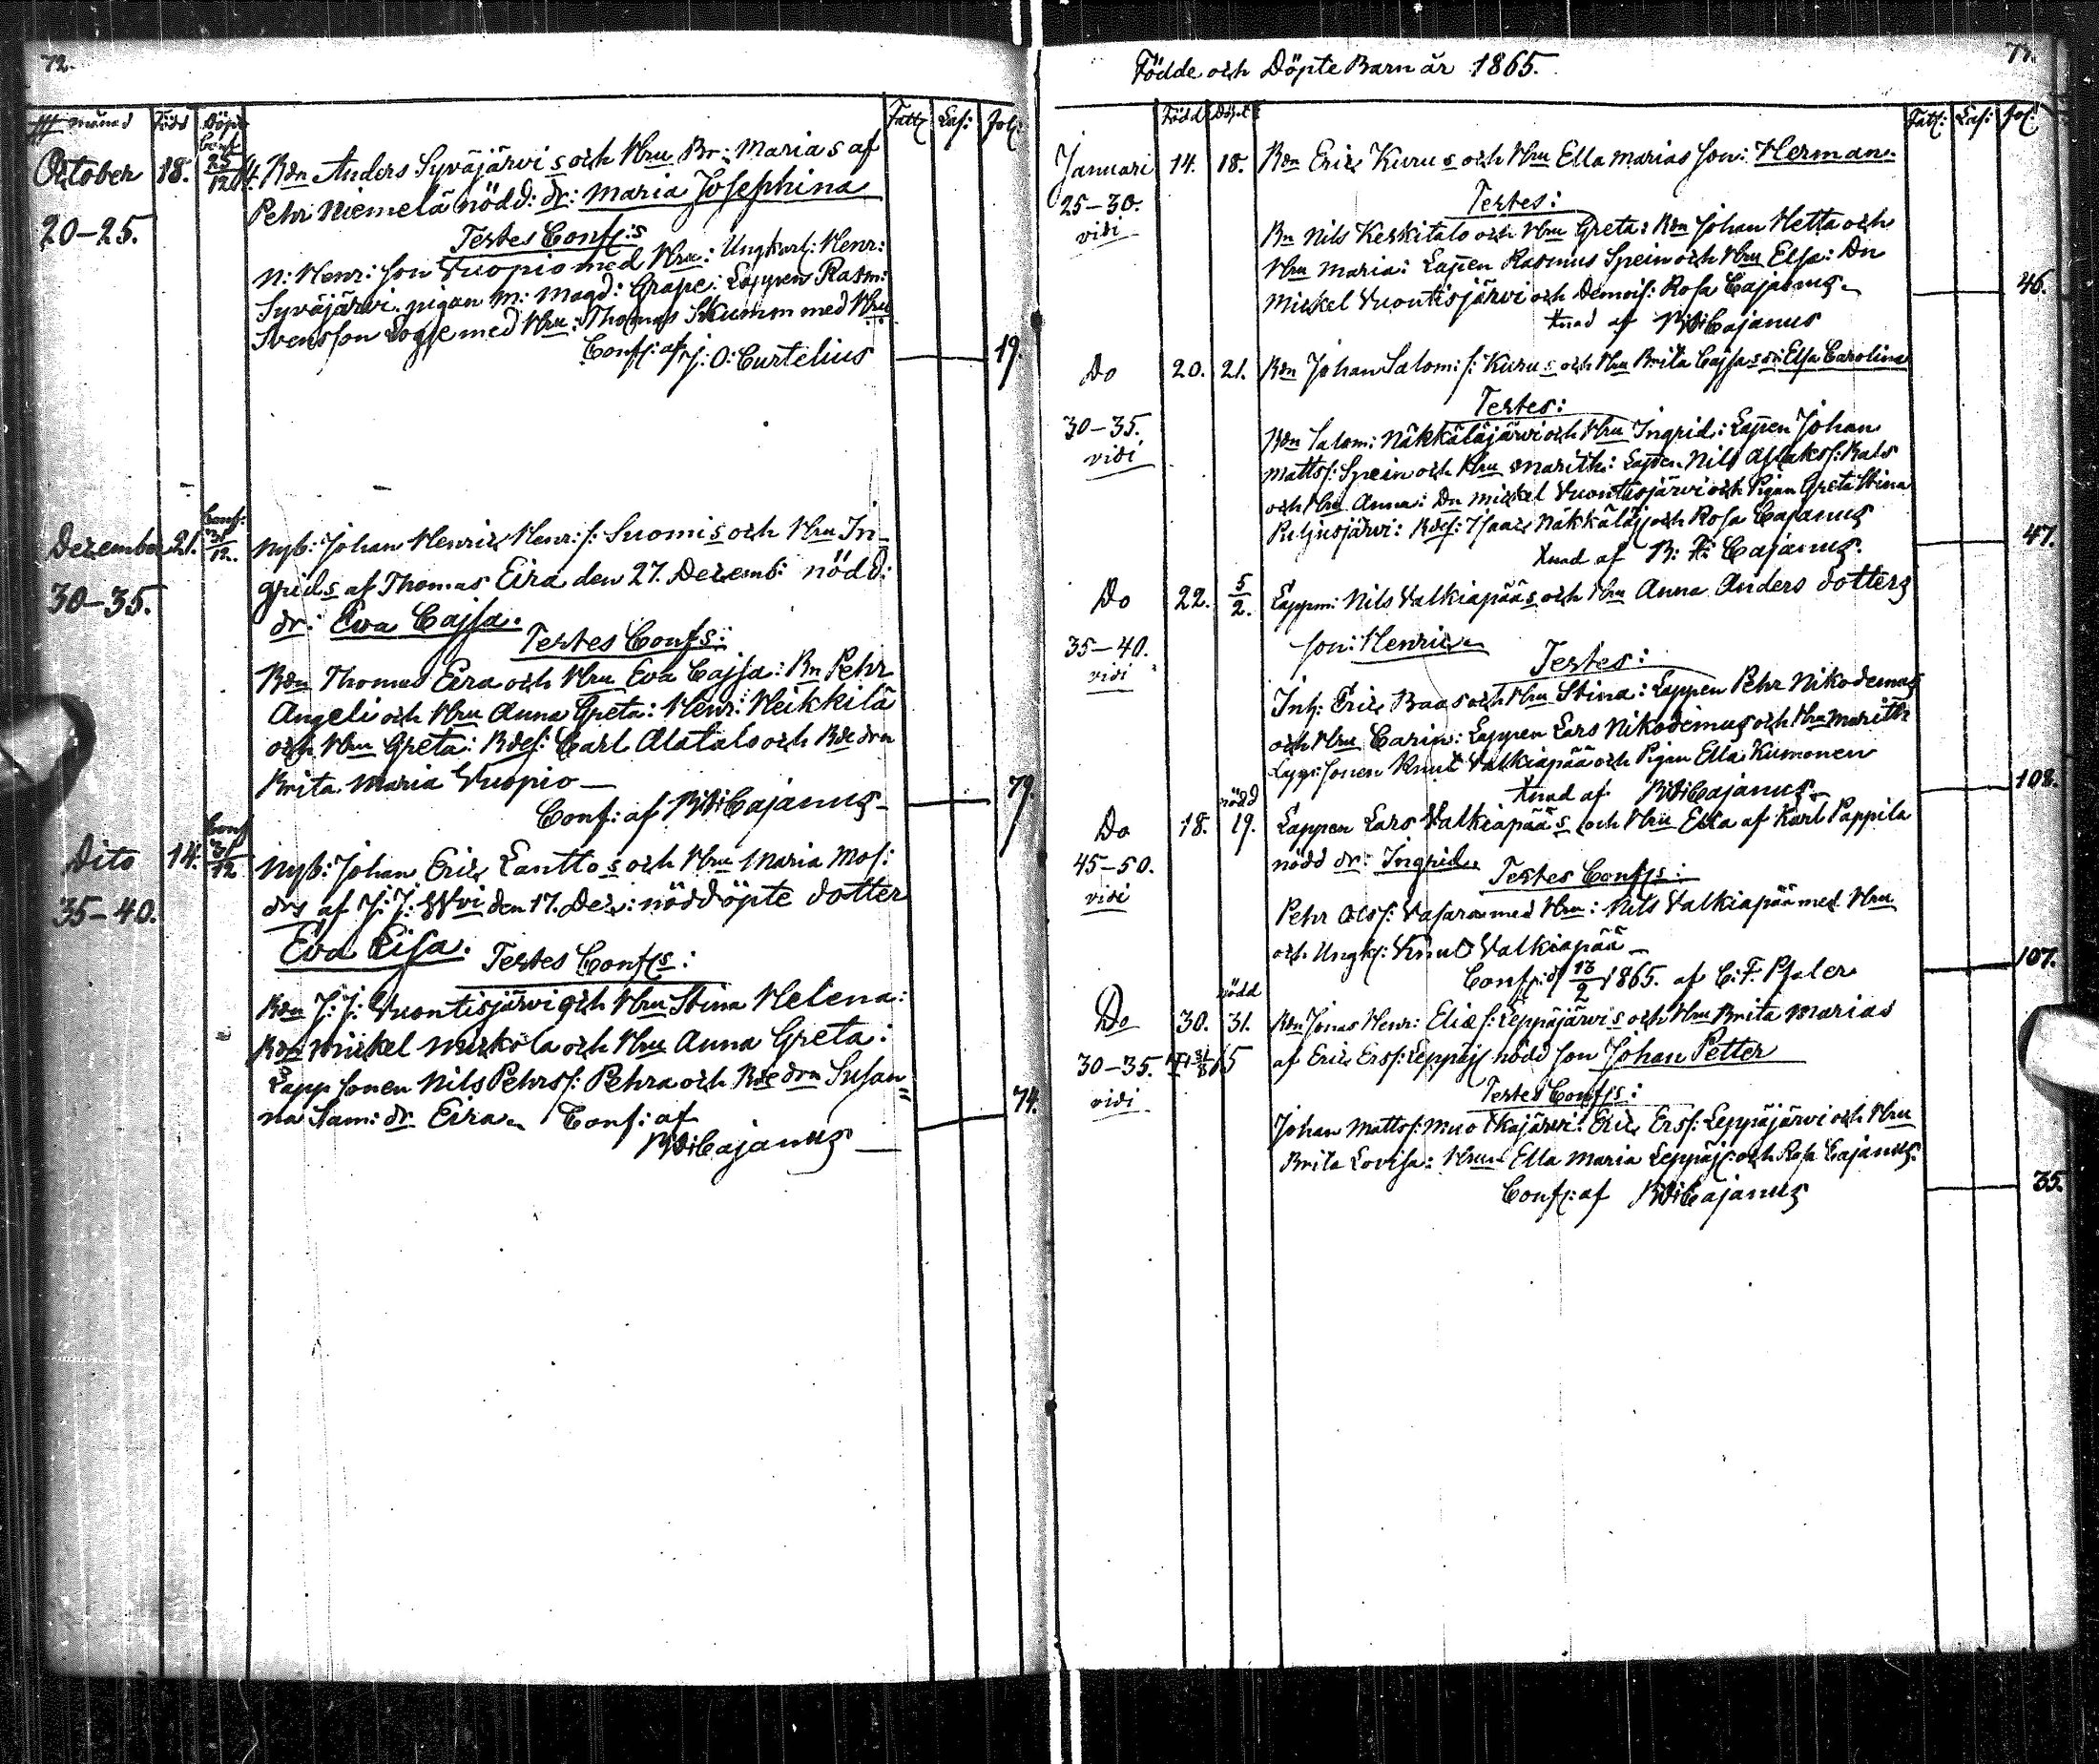 72.
månad Född Döpt Fatt: Las: Jol:
October 18. Conf 25/12 64. Bdn Anders Syväjärvi s och Hru Br: Marias af
20-25. Pehr Niemelä nödd: dr: Maria Josephina
Testes Conf:s
N: Henr: Son Vuopio med Hru: Ungkarl: Henr:
Syväjärvi. pigan M: Magd: Grape: Lappen Rasm:
Svensson Logje med Hru: Thomas Skumm med Hru
Conf: af J: O: Curtelius 19.
December 21. Conf: 31/12. Nyb: Johan Henric Henr: s: Suomis och Hru In-
30-35. grids af Thomas Eira den 27. Decemb: nödd:
dr: Eva Cajsa.
Testes Conf s:
Bdn Thomas Eira och Hru Eva Cajsa: Bn Pehr
Angeli och Hru Anna Greta: Henr: Heikkilä
och Hru Greta: Bdes: Carl Alatalo och Bde drn
Brita Maria Vuopio
Conf: af Cajanus 79.
Dito 14. Conf 31/12 Nyb: Johan Eric Lantto s och Hru Maria Mos:
35-40. drs af J: J: den 17. Dec: nöddöpte dotter
Eva Lisa. Testes Conf s:
Bdn J: J: Vuontisjärvi och Hru Stina Helena:
Bdn Mickel Muskola och Hru Anna Greta:
Lapp sonen Nils Pehrs s: Pehra och Bde drn Susan=
na Sam: dr Eira. Conf: af 74.
Cajanus
Födde och Döpte Barn år 1865. 73.
Född Döpt Fatt: Las: Jol:
Januari 14. 18. Bdn Eric Kuru s och Hru Ella Marias son: Herman.
25-30. Testes:
vidi Bn Nils Keskitalo och Hru Greta: Bdn Johan Hetta och
Hru Maria: Lappen Rasmus Spein och Hru Elsa: Dn
Mickel Vuontisjärvi och Demois: Rosa Cajanus 46.
af Cajanus
Do 20. 21. Bdn Johan Salom: s: Kuru s och Hru Brita Cajsa s dr: Elsa Carolina
30-35. Testes:
vidi Bdn Salom: Näkkäläjärvi och Hru Ingrid: Lappen Johan
Matts s: Spein och Hru Marith: Lappen Nils Aslaks s: Kals
och Hru Anna: Dn Mickel Vuontisjärvi och Pigan Greta Stina
Puljusjärvi: Bdes: Isaac Näkkäläj och Rosa Cajanus
af Cajanus 47.
Do 22. 5/2. Lappm: Nils Valkiapää s och Hru Anna Anders dotters
35-40. son: Henric
vidi Testes:
Inh: Eric Baas och Hru Stina: Lappen Pehr Nikodemus
och Hru Carin: Lappen Lars Nikodemus och Hru Marith:
Lapp: sonen Knut Valkiapää och Pigan Ella Kumonen
af Cajanus 108.
Do 18. nödd 19. Lappen Lars Valkiapää s och Hru Ella af Karl Pappila
45-50. nödd dr: Ingrid
vidi Testes Conf s:
Pehr Ols s: Vasara med Hru: Nils Valkiapää med Hru
och Ungk: Knut Valkiapää
Conf: d 13/2 1865. af C: F: Pfaler 107.
Do 30. nödd 31. Bdn Jonas Henr: Elias s: Leppäjärvis och Hru Brita Marias
30-35. af Eric Ers s: Leppäj nödd son Johan Petter
vidi Testes Conf s:
Johan Matts s: Muotkajärvi: Eric Ers s: Leppäjärvi och Hru
Brita Lovisa: Hrun Ella Maria Leppäj: och Rosa Cajanus.
Conf: af Cajanus 35.